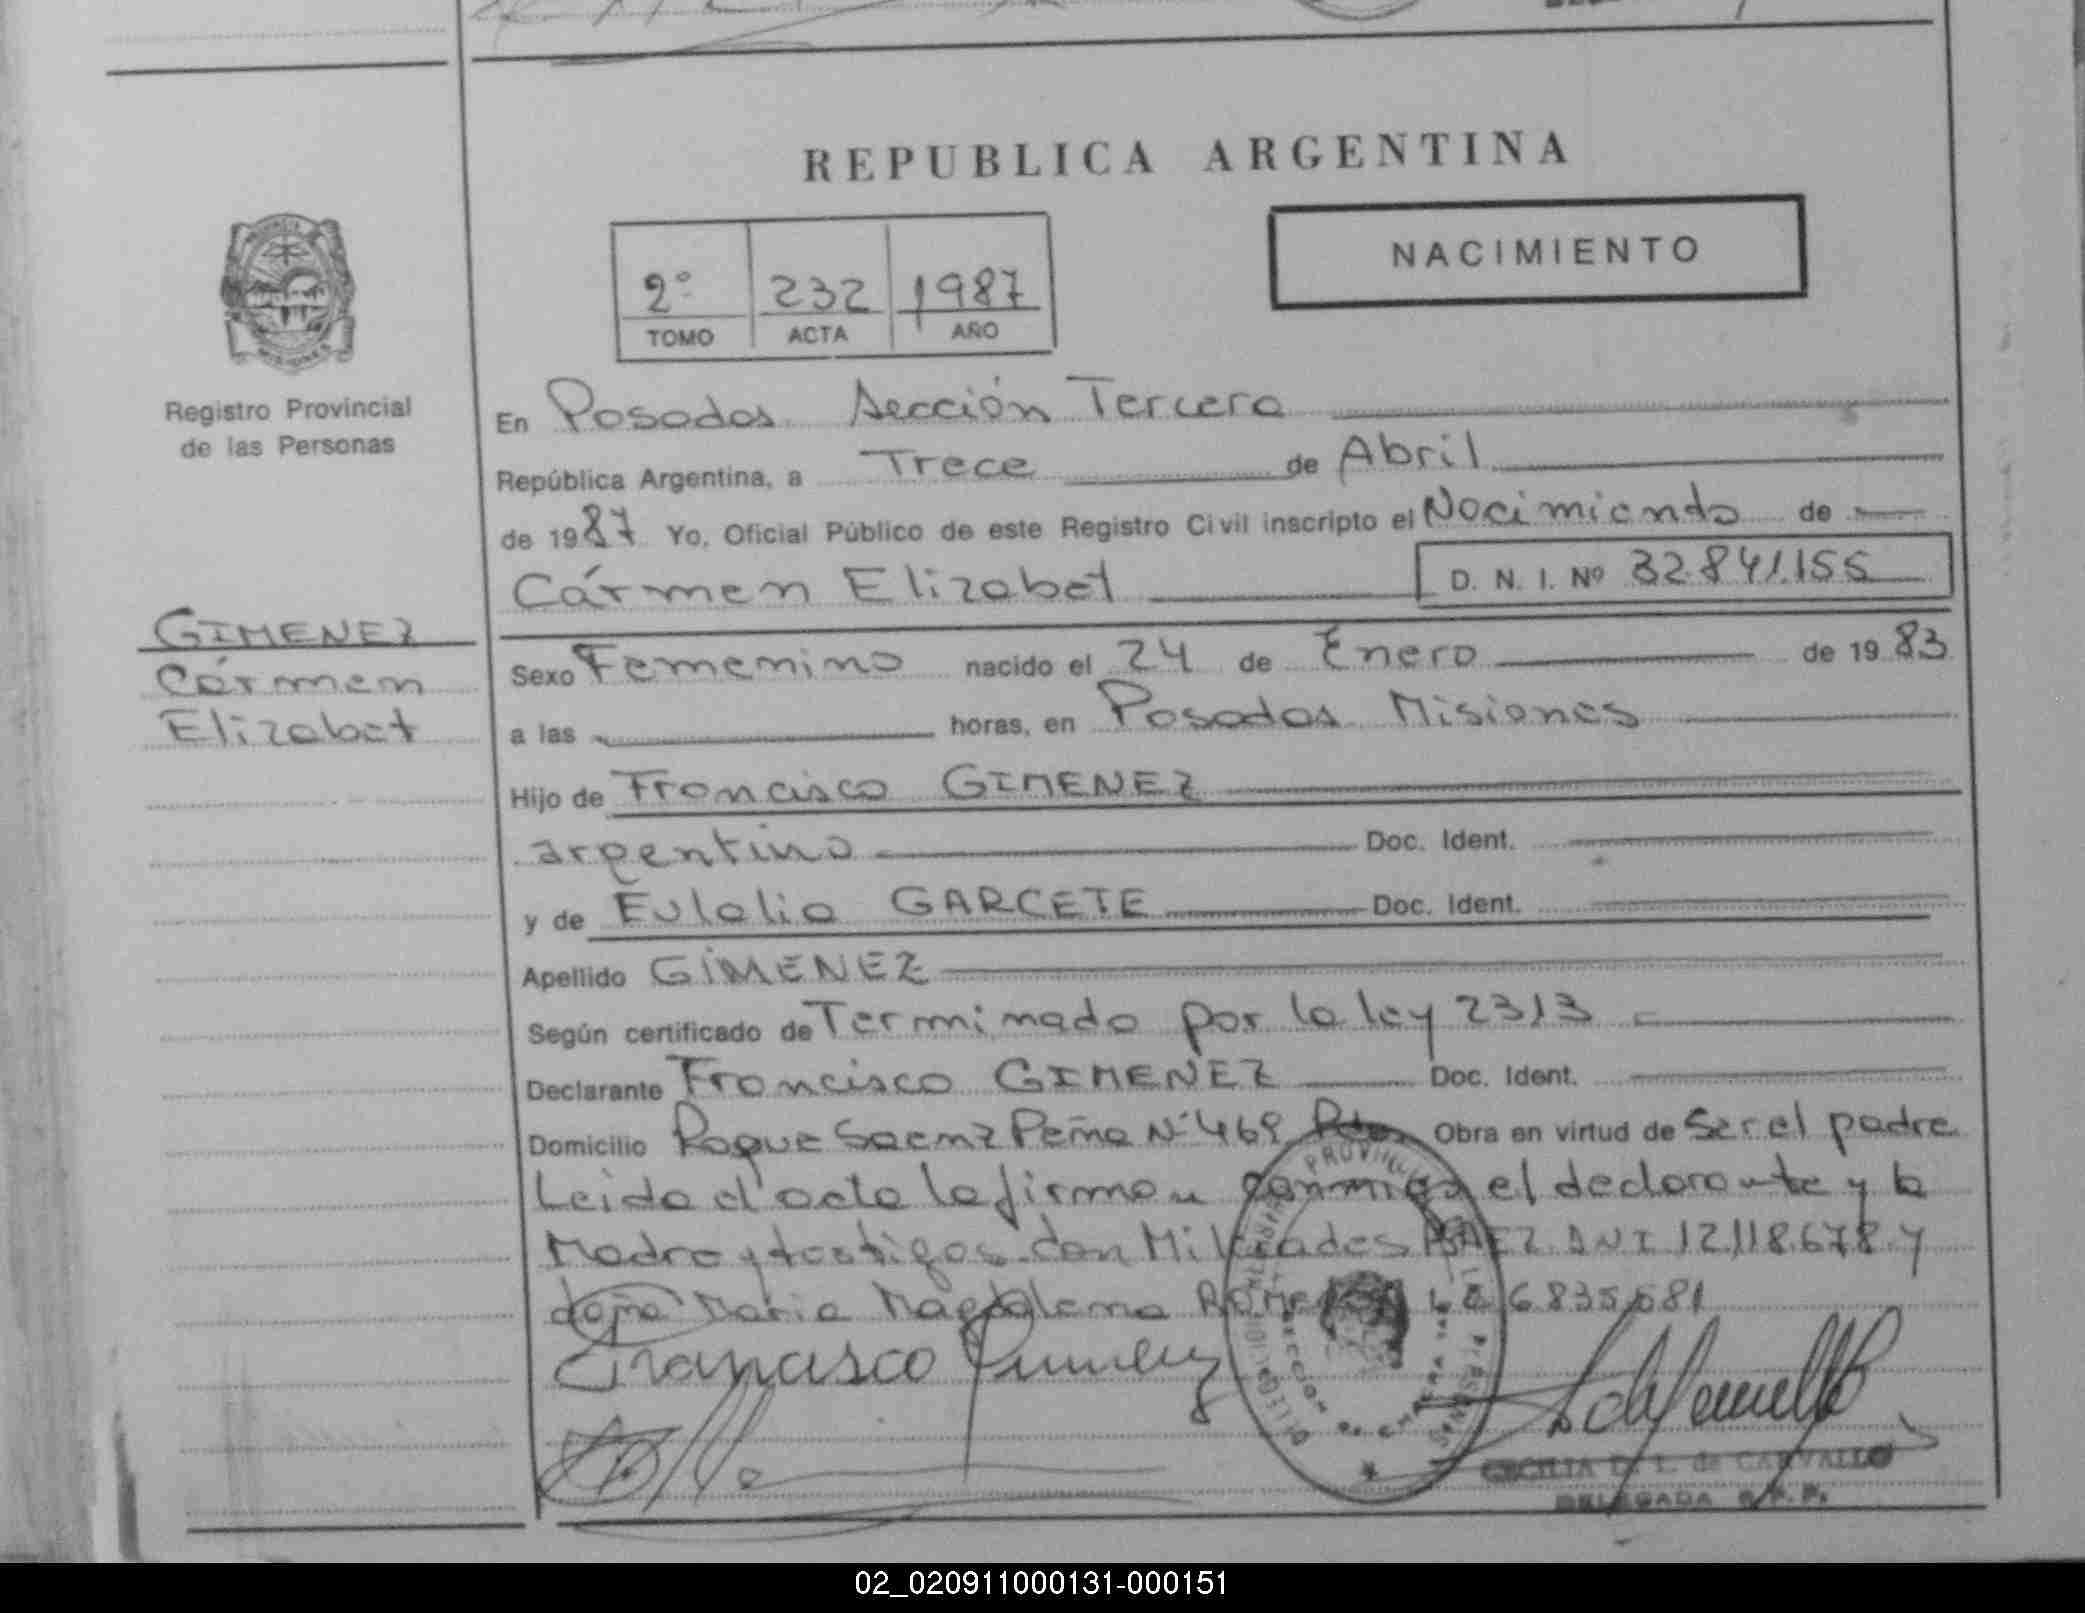 REPUBLICA ARGENTINA
NACIMIENTO
2º 232 1987
TOMO ACTA AÑO
Registro Provincial
de las Personas
GIMENEZ
Cármen
Elizabet
En Posadas Sección Tercera
República Argentina, a Trece de Abril
de 1987 Yo, Oficial Público de este Registro Civil inscripto el Nacimiento de
Cármen Elizabet D. N. I. Nº 32.841.155
Sexo Femenino nacido el 24 de Enero de 1983
a las horas, en Posadas Misiones
Hijo de Francisco GIMENEZ
argentino Doc. Ident.
y de Eulalia GARCETE Doc. Ident.
Apellido GIMENEZ
Según certificado de Terminado por la ley 2313
Declarante Francisco GIMENEZ Doc. Ident.
Domicilio Roque Saenz Peña Nº 469 Pdas Obra en virtud de Ser el padre
Leida el acta la firman conmigo el declarante y la
Madre y testigos don Milciades PAEZ DNI 12.118.678 y
doña Maria Magdalena 6835681
Francisco Gimenez
CECILIA de CARVALLO
DELEGADA R.P.P.
02_020911000131-000151